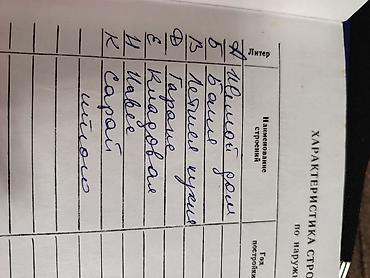 ХАРАКТЕРИСТИКА СТРО
по наруж
Литер
Наименование строений
Год постройки
А Жилой дом
Б Баня
В Летняя кухня
Д Гараж
Е Кладовая
И Навес
К Сарай